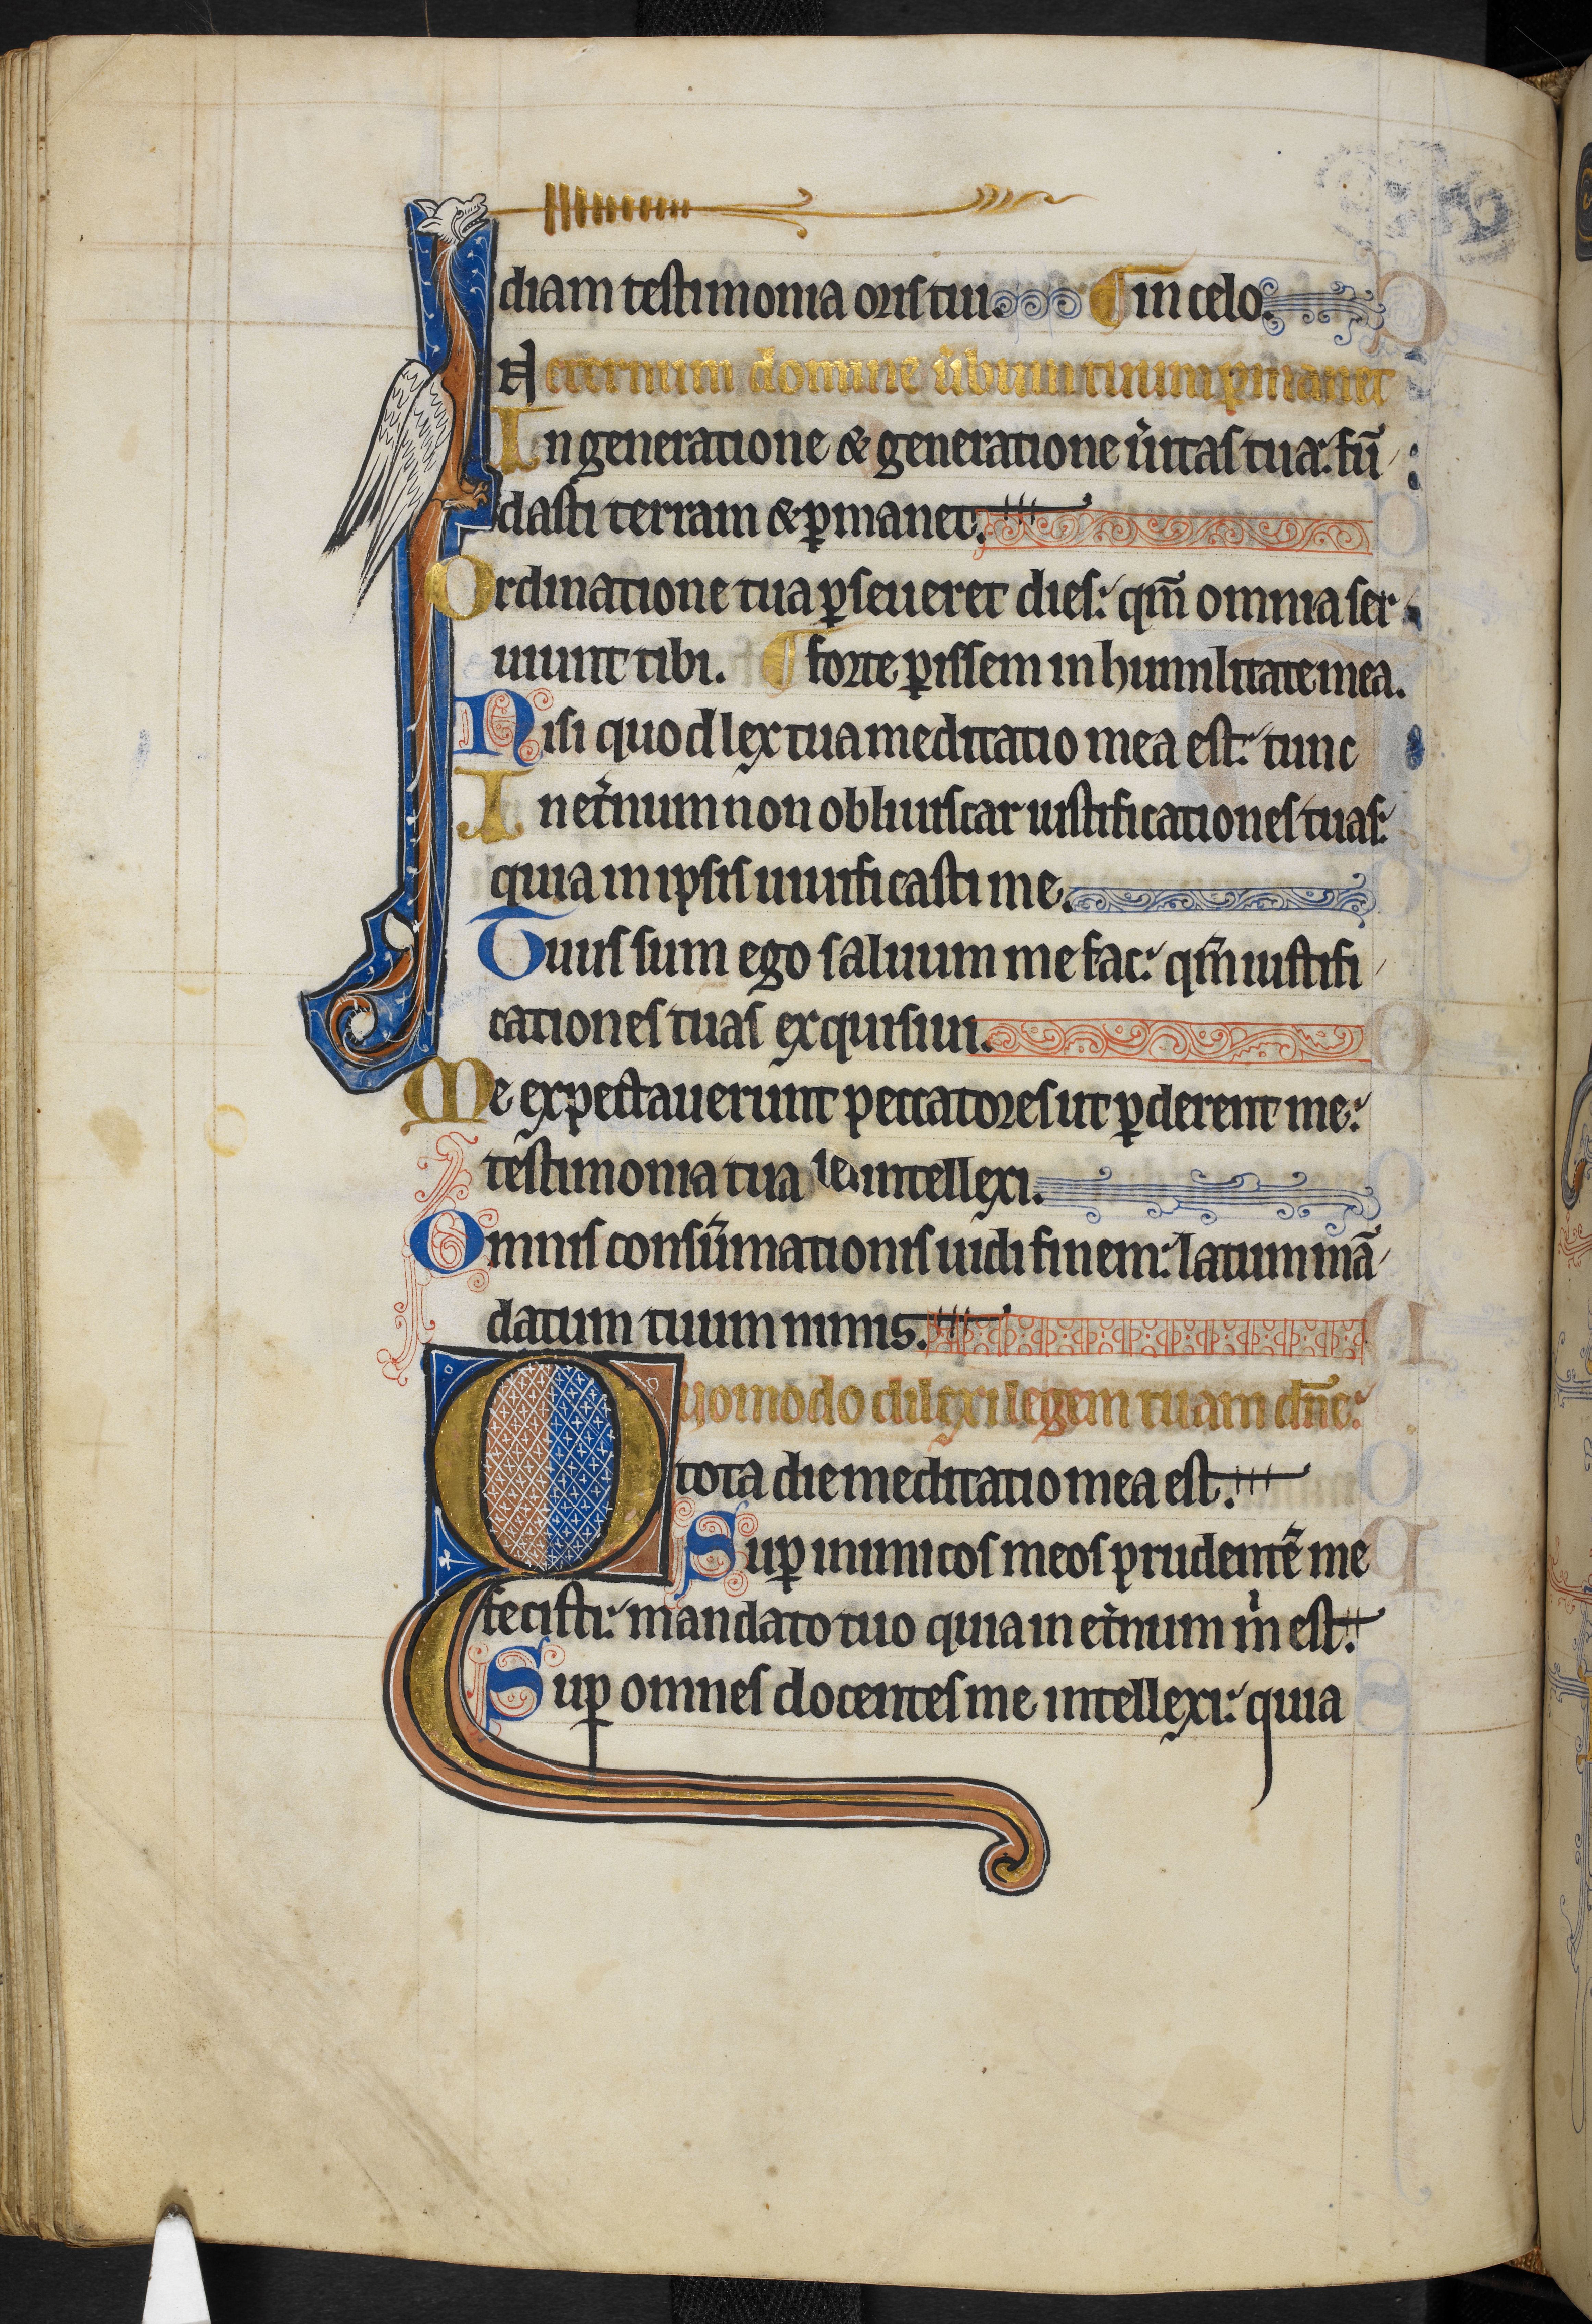 diam testimonia oris tui. ¶ in celo.
In eternum domine ũbum tuum ꝑmanet
In generatione & generatione ũitas tua: fũ
dasti terram & ꝑmanet.
Ordinatione tua ꝑseueret dies: qm̃ omnia ser
uiunt tibi. ¶ forte ꝑissem in humilitate mea.
Nisi quod lex tua meditatio mea est: tunc
In et̉num non obliuiscar iustificationes tuas:
quia in ipsis uiuificasti me.
Tuus sum ego saluum me fac: qm̃ iustifi
cationes tuas exquisiui.
Me expectauerunt peccatores ut ꝑderent me:
testimonia tua intellexi.
Omnis consũmationis uidi finem: latum mã
datum tuum nimis.
Quomodo dilexi legem tuam dñe:
tota die meditatio mea est.
Suꝑ inimicos meos prudentẽ me
fecisti: mandato tuo quia in et̉num m̉ est.
Suꝑ omnes docentes me intellexi: quia